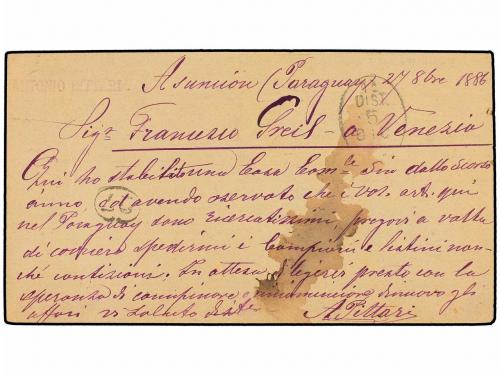 Asuncion (Paraguay) 27 8bre 1886
Sigr Francesco Greil - a Venezia
Qui ho stabilito una Casa Comle sin dallo scorso
anno, ed avendo osservato che i vos. art. qui
nel Paraguay sono ricercatissimi, pregovi a volta
di corriere spedirmi i campioni e listini non-
ché condizioni. In attesa di leggervi presto con la
speranza di
affari vi saluto
A Pittari
DIST.
5